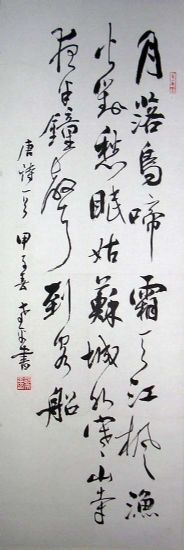 月落烏啼霜天江楓漁
火對愁眠姑蘇城外寒山寺
夜半鐘聲到客船
唐詩一首 甲子春 書